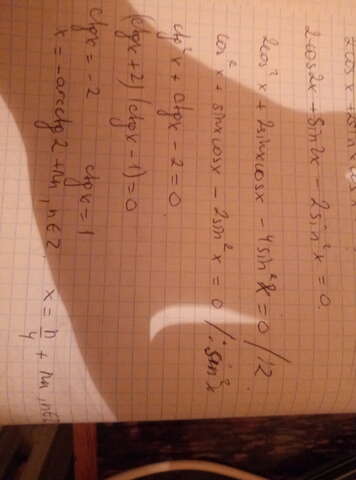 2cos2x + sin2x - 2sin²x = 0
2cos²x + 2sinxcosx - 4sin²x = 0 /:2
cos²x + sinxcosx - 2sin²x = 0 /: sin²x
ctg²x + ctgx - 2 = 0
(ctgx+2)(ctgx-1)=0
ctgx = -2 ctgx = 1
x = -arcctg2 + πn, n∈Z. x = π/4 + πn, n∈Z